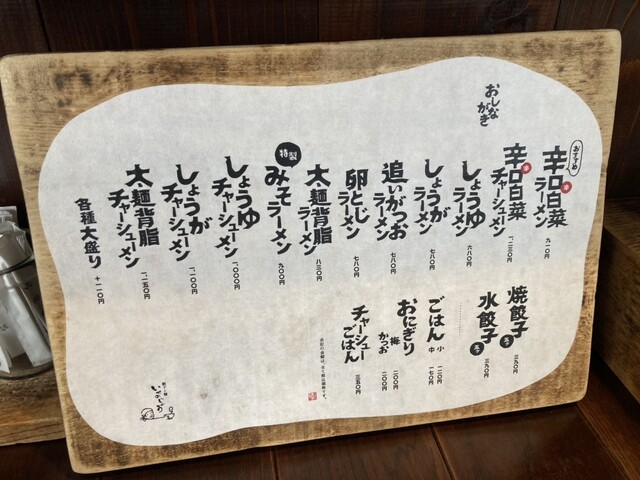 おしながき
おすすめ
辛口白菜ラーメン 九一〇円
辛口白菜チャーシューメン 一、二三〇円
しょうゆラーメン 六八〇円
しょうがラーメン 七八〇円
追いがつおラーメン 七八〇円
卵とじラーメン 七八〇円
太麺背脂ラーメン 八三〇円
特製
みそラーメン 九〇〇円
しょうゆチャーシューメン 一、〇〇〇円
しょうがチャーシューメン 一、一〇〇円
太麺背脂チャーシューメン 一、一五〇円
各種大盛り +一一〇円
焼餃子 三九〇円
水餃子 三九〇円
ごはん 小 一二〇円
中 一七〇円
おにぎり 梅 二〇〇円
かつお 二〇〇円
チャーシューごはん 三五〇円